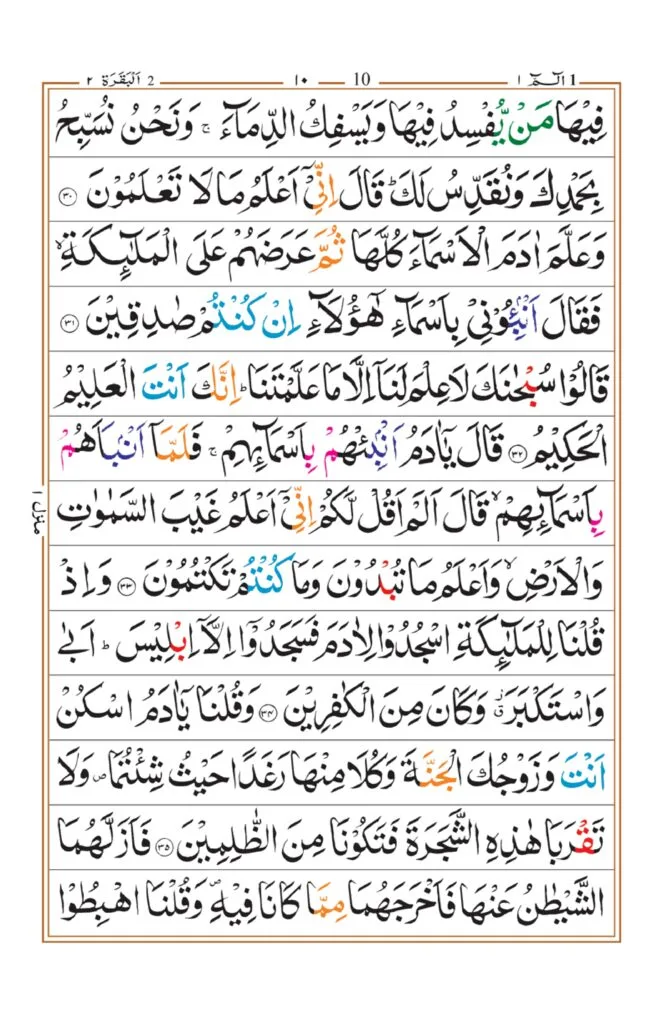 الٓمّٓ ١ 1 10 ١٠ 2 اَلْبَقَرَة ٢
فِيْهَا مَنْ يُّفْسِدُ فِيْهَا وَيَسْفِكُ الدِّمَآءَ ۚ وَنَحْنُ نُسَبِّحُ
بِحَمْدِكَ وَنُقَدِّسُ لَكَ ؕ قَالَ اِنِّىْٓ اَعْلَمُ مَا لَا تَعْلَمُوْنَ ۝۳۰
وَعَلَّمَ اٰدَمَ الْاَسْمَآءَ كُلَّهَا ثُمَّ عَرَضَهُمْ عَلَى الْمَلٰٓئِكَةِ ۙ
فَقَالَ اَنْۢبِـُٔوْنِىْ بِاَسْمَآءِ هٰٓؤُلَآءِ اِنْ كُنْتُمْ صٰدِقِيْنَ ۝۳۱
قَالُوْا سُبْحٰنَكَ لَا عِلْمَ لَنَآ اِلَّا مَا عَلَّمْتَنَا ؕ اِنَّكَ اَنْتَ الْعَلِيْمُ
الْحَكِيْمُ ۝۳۲ قَالَ يٰٓاٰدَمُ اَنْۢبِئْهُمْ بِاَسْمَآئِهِمْ ۚ فَلَمَّآ اَنْۢبَاَهُمْ
بِاَسْمَآئِهِمْ ۙ قَالَ اَلَمْ اَقُلْ لَّكُمْ اِنِّىْٓ اَعْلَمُ غَيْبَ السَّمٰوٰتِ
وَالْاَرْضِ ۙ وَاَعْلَمُ مَا تُبْدُوْنَ وَمَا كُنْتُمْ تَكْتُمُوْنَ ۝۳۳ وَاِذْ
قُلْنَا لِلْمَلٰٓئِكَةِ اسْجُدُوْا لِاٰدَمَ فَسَجَدُوْٓا اِلَّآ اِبْلِيْسَ ؕ اَبٰى
وَاسْتَكْبَرَ ۗ وَكَانَ مِنَ الْكٰفِرِيْنَ ۝۳۴ وَقُلْنَا يٰٓاٰدَمُ اسْكُنْ
اَنْتَ وَزَوْجُكَ الْجَنَّةَ وَكُلَا مِنْهَا رَغَدًا حَيْثُ شِئْتُمَا ۪ وَلَا
تَقْرَبَا هٰذِهِ الشَّجَرَةَ فَتَكُوْنَا مِنَ الظّٰلِمِيْنَ ۝۳۵ فَاَزَلَّهُمَا
الشَّيْطٰنُ عَنْهَا فَاَخْرَجَهُمَا مِمَّا كَانَا فِيْهِ ۪ وَقُلْنَا اهْبِطُوْا
منزل ١